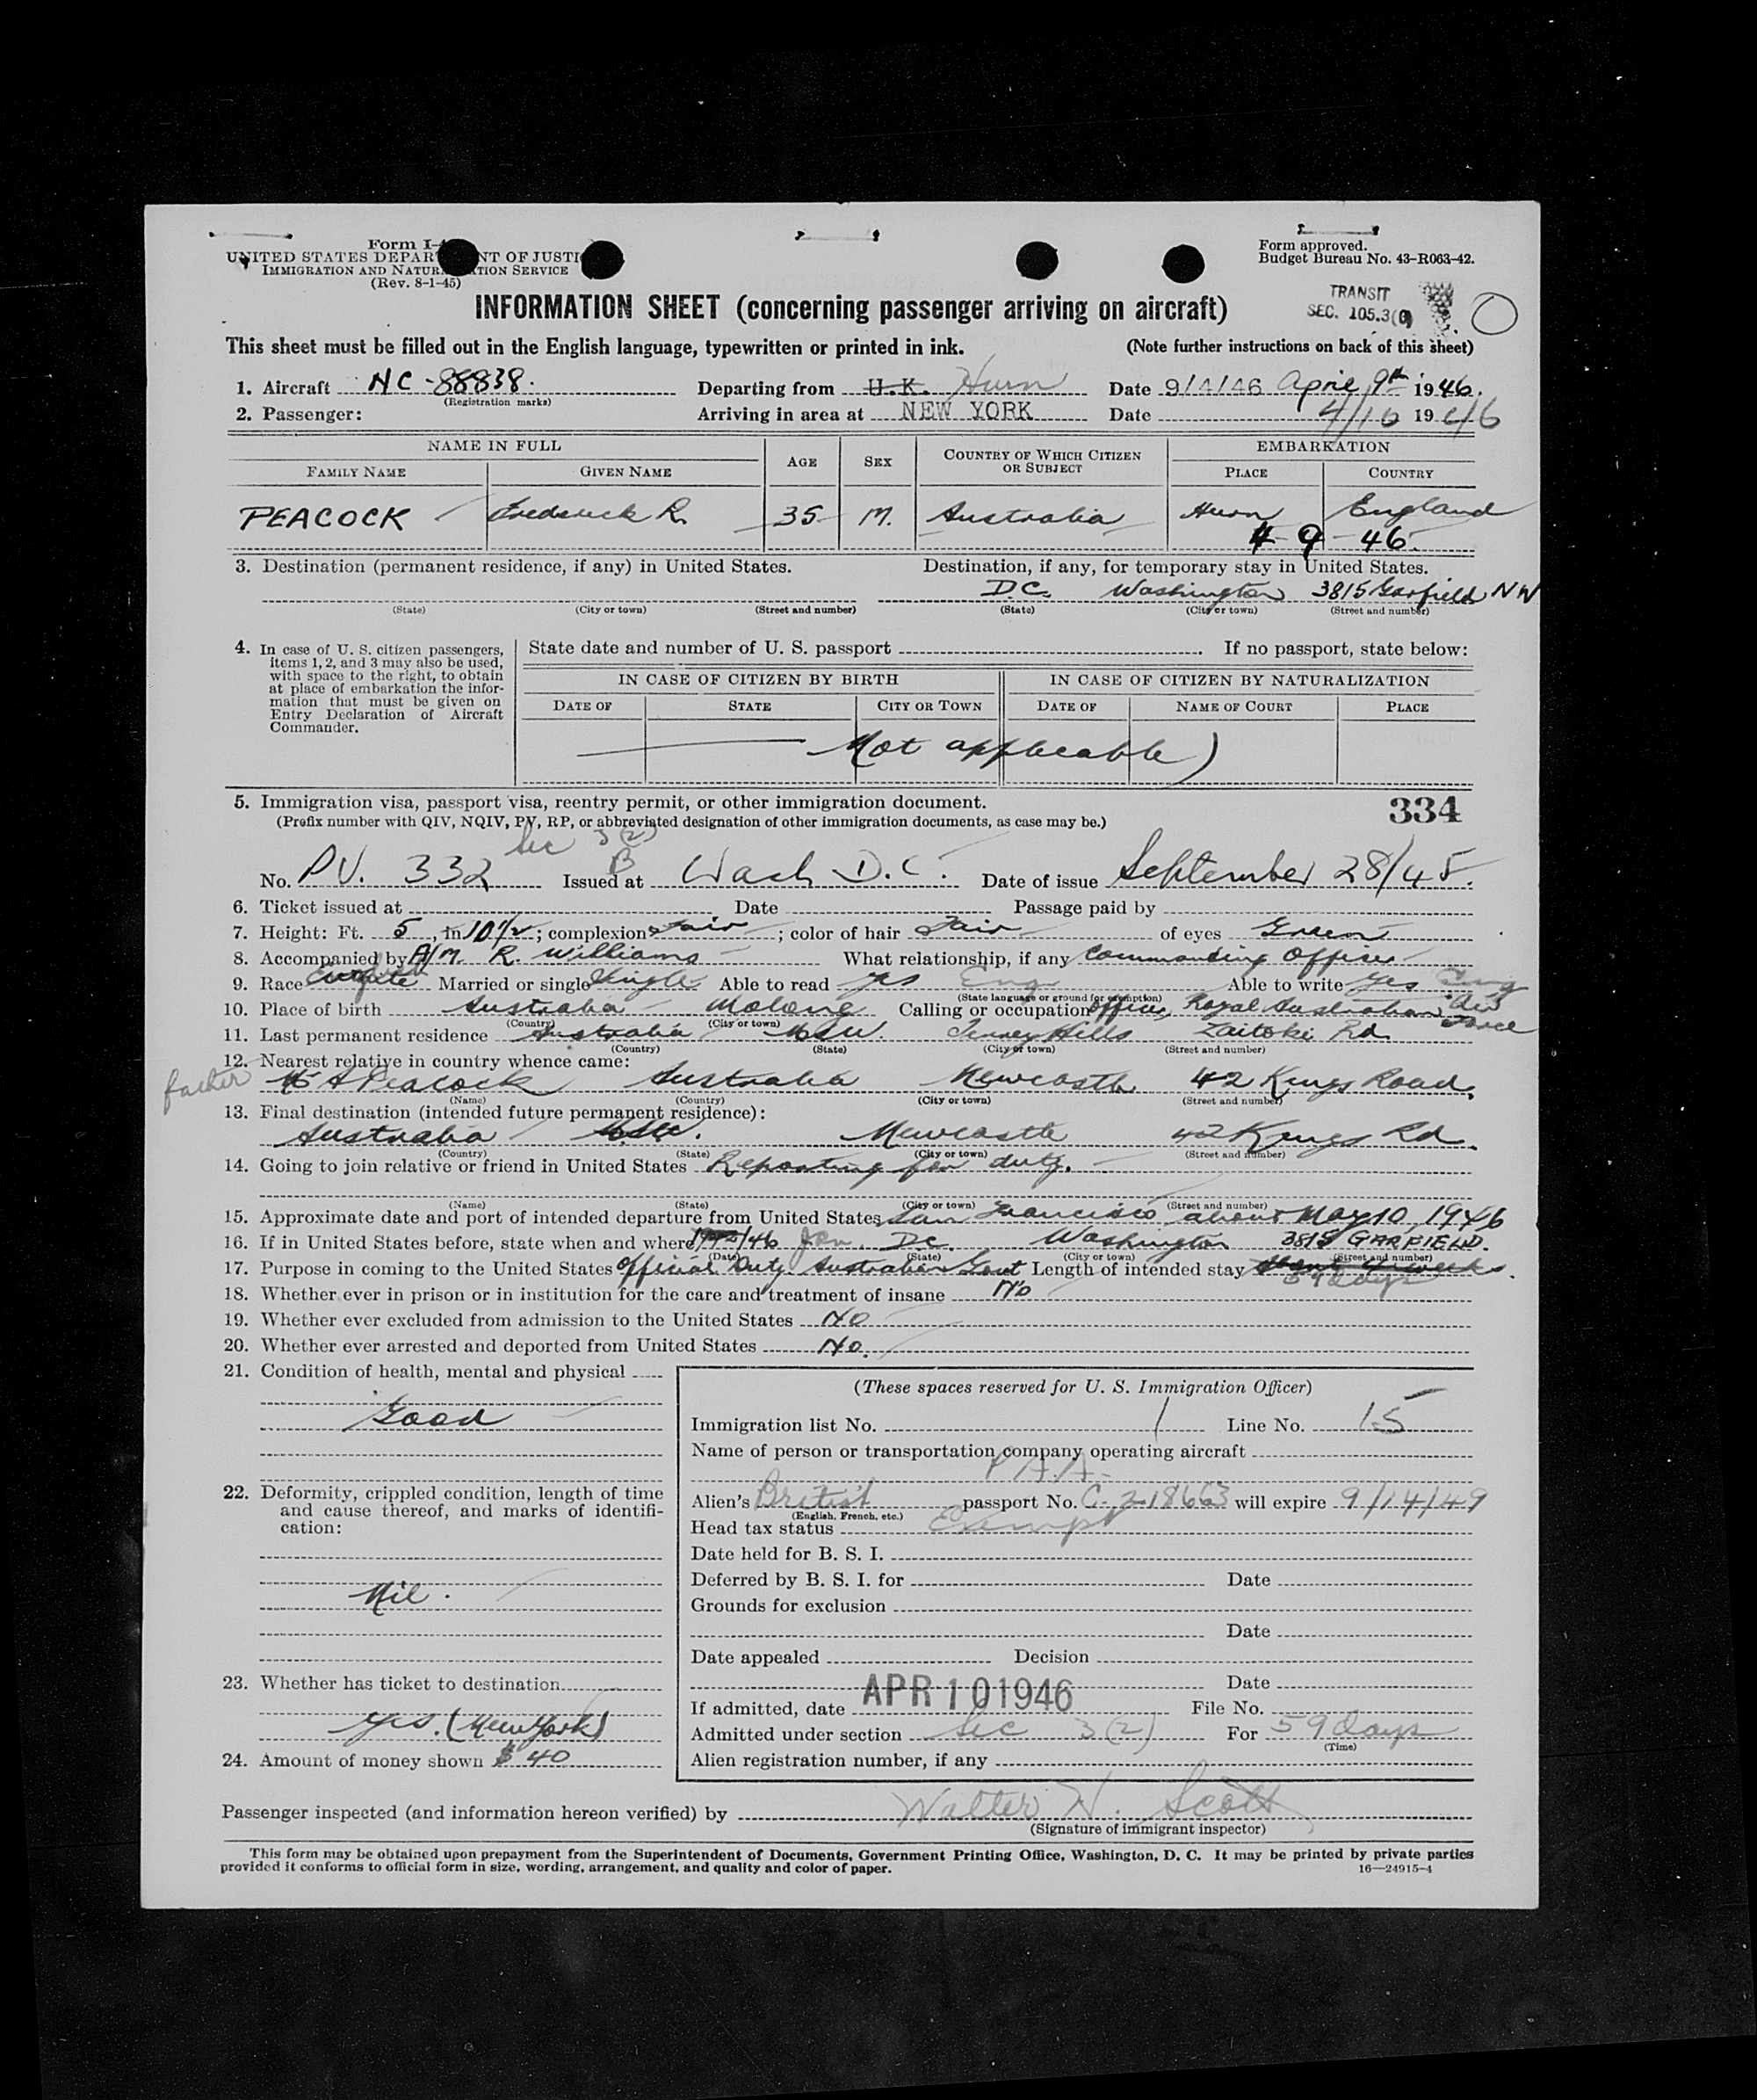 Form I-
UNITED STATES DEPAR NT OF JUSTI
IMMIGRATION AND NATUR TION SERVICE
(Rev. 8-1-45)
Form approved.
Budget Bureau No. 43-R063-42.
INFORMATION SHEET (concerning passenger arriving on aircraft)
TRANSIT
SEC. 105.3
This sheet must be filled out in the English language, typewritten or printed in ink. (Note further instructions on back of this sheet)
1. Aircraft NC-88838. Departing from U.K. Hurn Date 9/4/46 April 9th 1946.
(Registration marks)
2. Passenger: Arriving in area at NEW YORK Date 4/10 1946
NAME IN FULL AGE SEX COUNTRY OF WHICH CITIZEN OR SUBJECT EMBARKATION
FAMILY NAME GIVEN NAME PLACE COUNTRY
PEACOCK Frederick R. 35 M. Australia Hurn England
4-9-46.
3. Destination (permanent residence, if any) in United States. Destination, if any, for temporary stay in United States.
D.C. Washington 3815 Garfield NW
(State) (City or town) (Street and number) (State) (City or town) (Street and number)
4. In case of U. S. citizen passengers, items 1, 2, and 3 may also be used, with space to the right, to obtain at place of embarkation the information that must be given on Entry Declaration of Aircraft Commander.
State date and number of U. S. passport If no passport, state below:
IN CASE OF CITIZEN BY BIRTH IN CASE OF CITIZEN BY NATURALIZATION
DATE OF STATE CITY OR TOWN DATE OF NAME OF COURT PLACE
Not applicable)
5. Immigration visa, passport visa, reentry permit, or other immigration document. 334
(Prefix number with QIV, NQIV, PV, RP, or abbreviated designation of other immigration documents, as case may be.)
Sec 3(2)
B
No. PV. 332 Issued at Wash D.C. Date of issue September 28/45.
6. Ticket issued at Date Passage paid by
7. Height: Ft. 5, in. 10 1/2; complexion Fair; color of hair Fair of eyes Green
8. Accompanied by A/M. R. Williams What relationship, if any Commanding Officer
9. Race Married or single Single Able to read yes Eng Able to write yes Eng
(State language or ground for exemption)
10. Place of birth Australia Molong Calling or occupation Officer, Royal Australian Air Force
(Country) (City or town)
11. Last permanent residence Australia NSW. Terrey Hills Rd
(Country) (State) (City or town) (Street and number)
12. Nearest relative in country whence came:
father A Peacock Australia Newcastle 42 Kings Road,
(Name) (Country) (City or town) (Street and number)
13. Final destination (intended future permanent residence):
Australia NSW. Newcastle 42 Kings Rd.
(Country) (State) (City or town) (Street and number)
14. Going to join relative or friend in United States Reporting for duty.
(Name) (State) (City or town) (Street and number)
15. Approximate date and port of intended departure from United States San Francisco about May 10, 1946
16. If in United States before, state when and where /46 Jan. D.C. Washington 3815 GARFIELD.
(Date) (State) (City or town) (Street and number)
17. Purpose in coming to the United States Official Duty Australian Govt Length of intended stay 59 days
18. Whether ever in prison or in institution for the care and treatment of insane No
19. Whether ever excluded from admission to the United States NO
20. Whether ever arrested and deported from United States NO.
21. Condition of health, mental and physical
Good
22. Deformity, crippled condition, length of time and cause thereof, and marks of identification:
Nil.
23. Whether has ticket to destination
Yes. (New York)
24. Amount of money shown $40
(These spaces reserved for U. S. Immigration Officer)
Immigration list No. 1 Line No. 15
Name of person or transportation company operating aircraft
P.A.A.
Alien's British passport No. C-218663 will expire 9/14/49
(English, French, etc.)
Head tax status Exempt
Date held for B. S. I.
Deferred by B. S. I. for Date
Grounds for exclusion
Date
Date appealed Decision
Date
If admitted, date APR 10 1946 File No.
Admitted under section Sec 3(2) For 59 days
(Time)
Alien registration number, if any
Passenger inspected (and information hereon verified) by Walter N. Scott
(Signature of immigrant inspector)
This form may be obtained upon prepayment from the Superintendent of Documents, Government Printing Office, Washington, D. C. It may be printed by private parties
provided it conforms to official form in size, wording, arrangement, and quality and color of paper. 16—24915-4